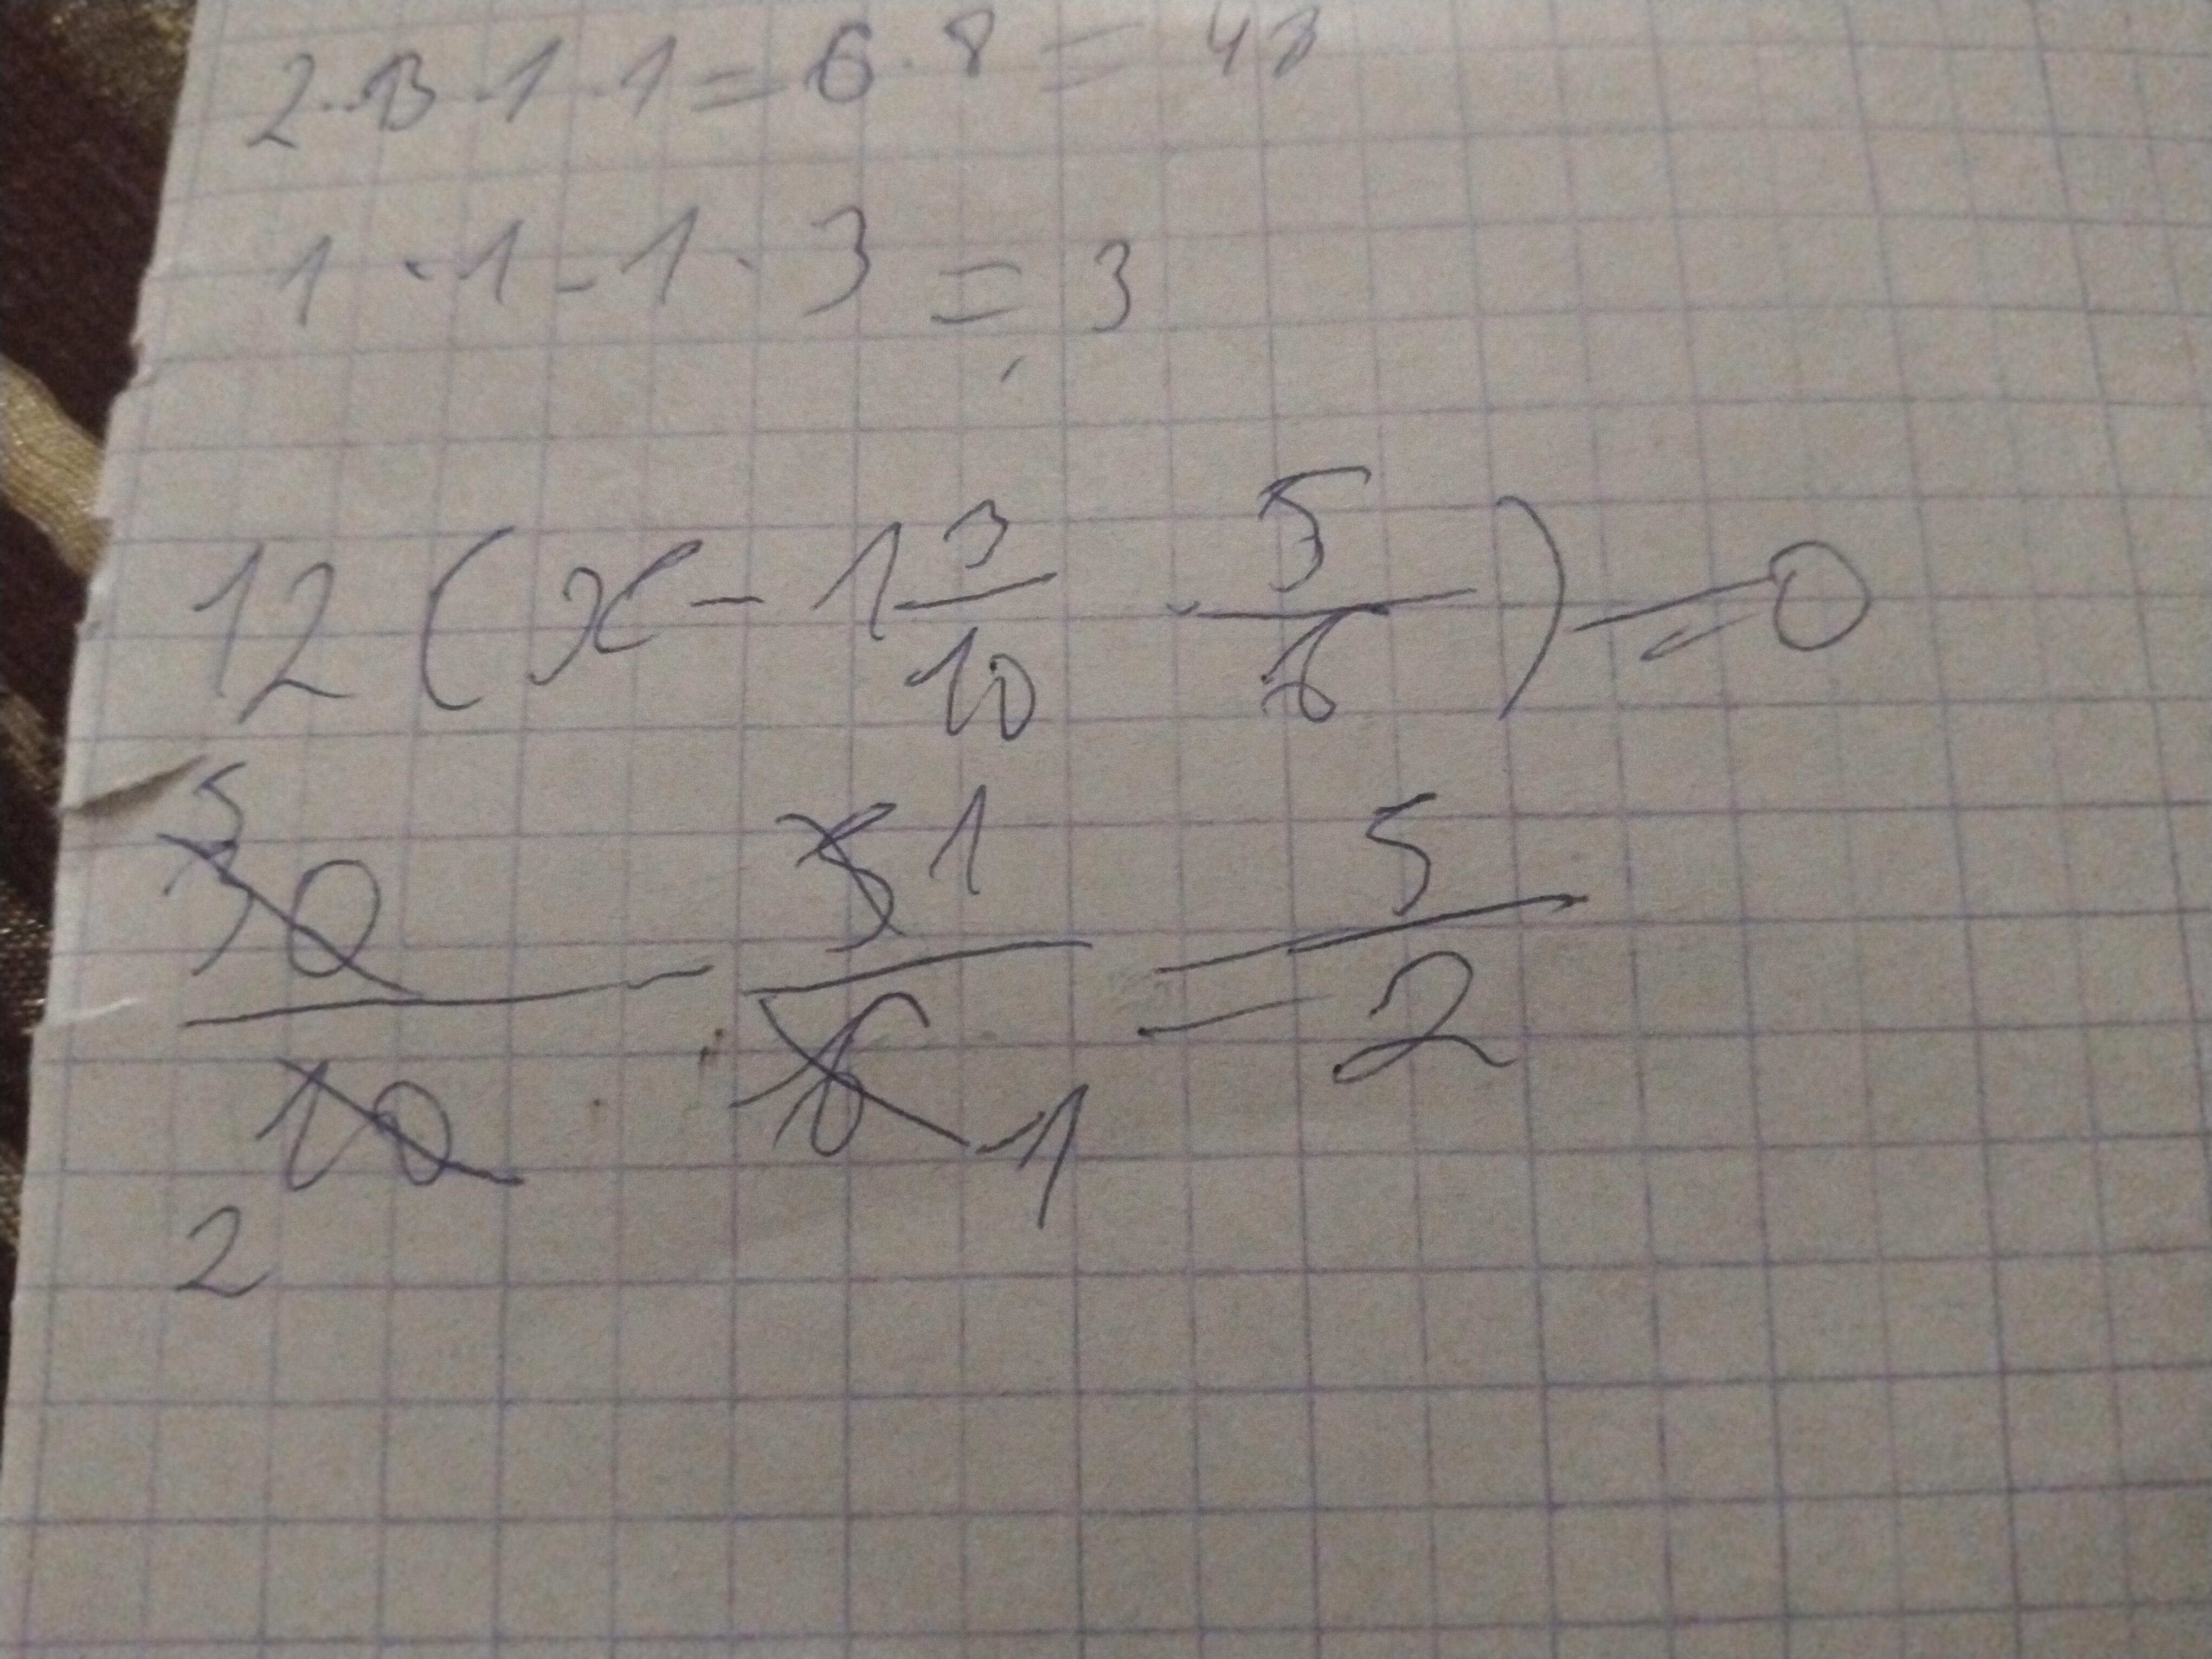 2·3·1·1=6·8=48
1·1-1·3=3
12(x-1 3/10 · 5/6)=0
5 30/10 2 - 5 1/6 1 = 5/2